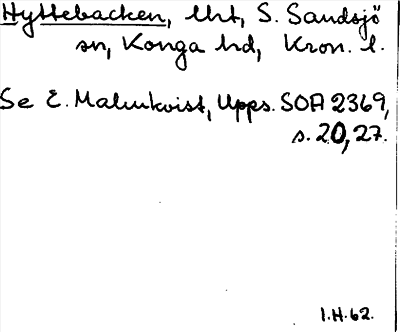 Hyttebacken, lht, S. Sandsjö
sn, Konga hd, Kron. l.
Se E. Malmkvist, Upps. SOA 2369,
s. 20, 27.
I.H. 62.